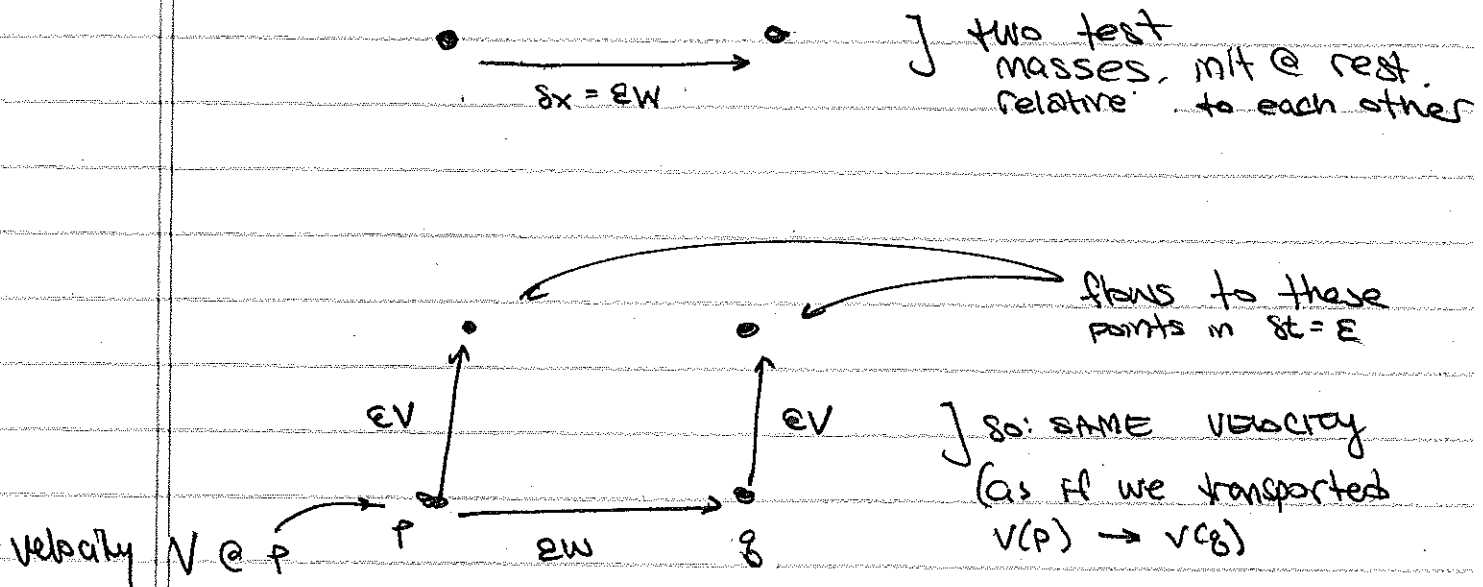 ] two test
masses, init @ rest.
relative to each other
δx = εW
flows to these
points in δt = ε
εV
εV
] so: SAME VELOCITY
(as if we transported
V(p) → V(q)
velocity V @ p
p
εW
q